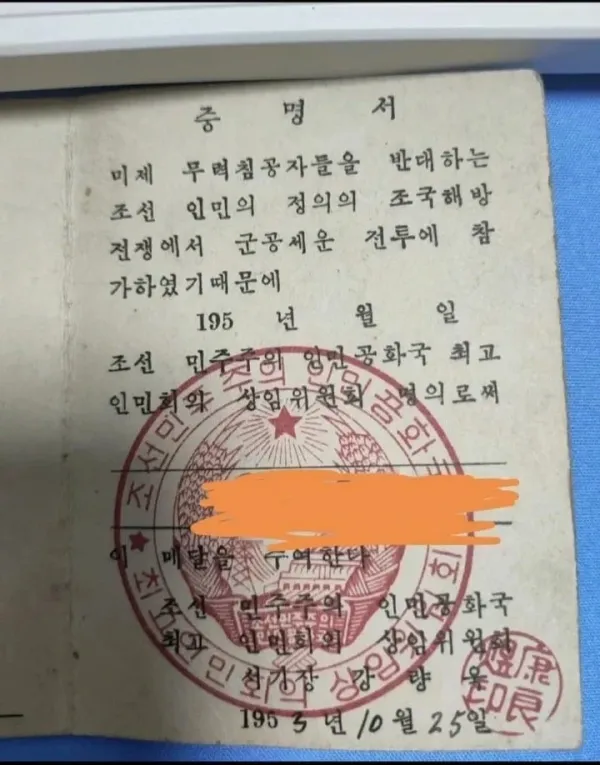 증 명 서
미제 무력침공자들을 반대하는
조선 인민의 정의의 조국해방
전쟁에서 군공세운 전투에 참
가하였기때문에
195 년 월 일
조선 민주주의 인민공화국 최고
인민회의 상임위원회 명의로써
이 메달을 수여한다
조선 민주주의 인민공화국
최고 인민회의 상임위원회
서기장 강 량 욱
1953년 10월 25일
조선민주주의인민공화국 최고인민회의 상임위원회
康良煜印